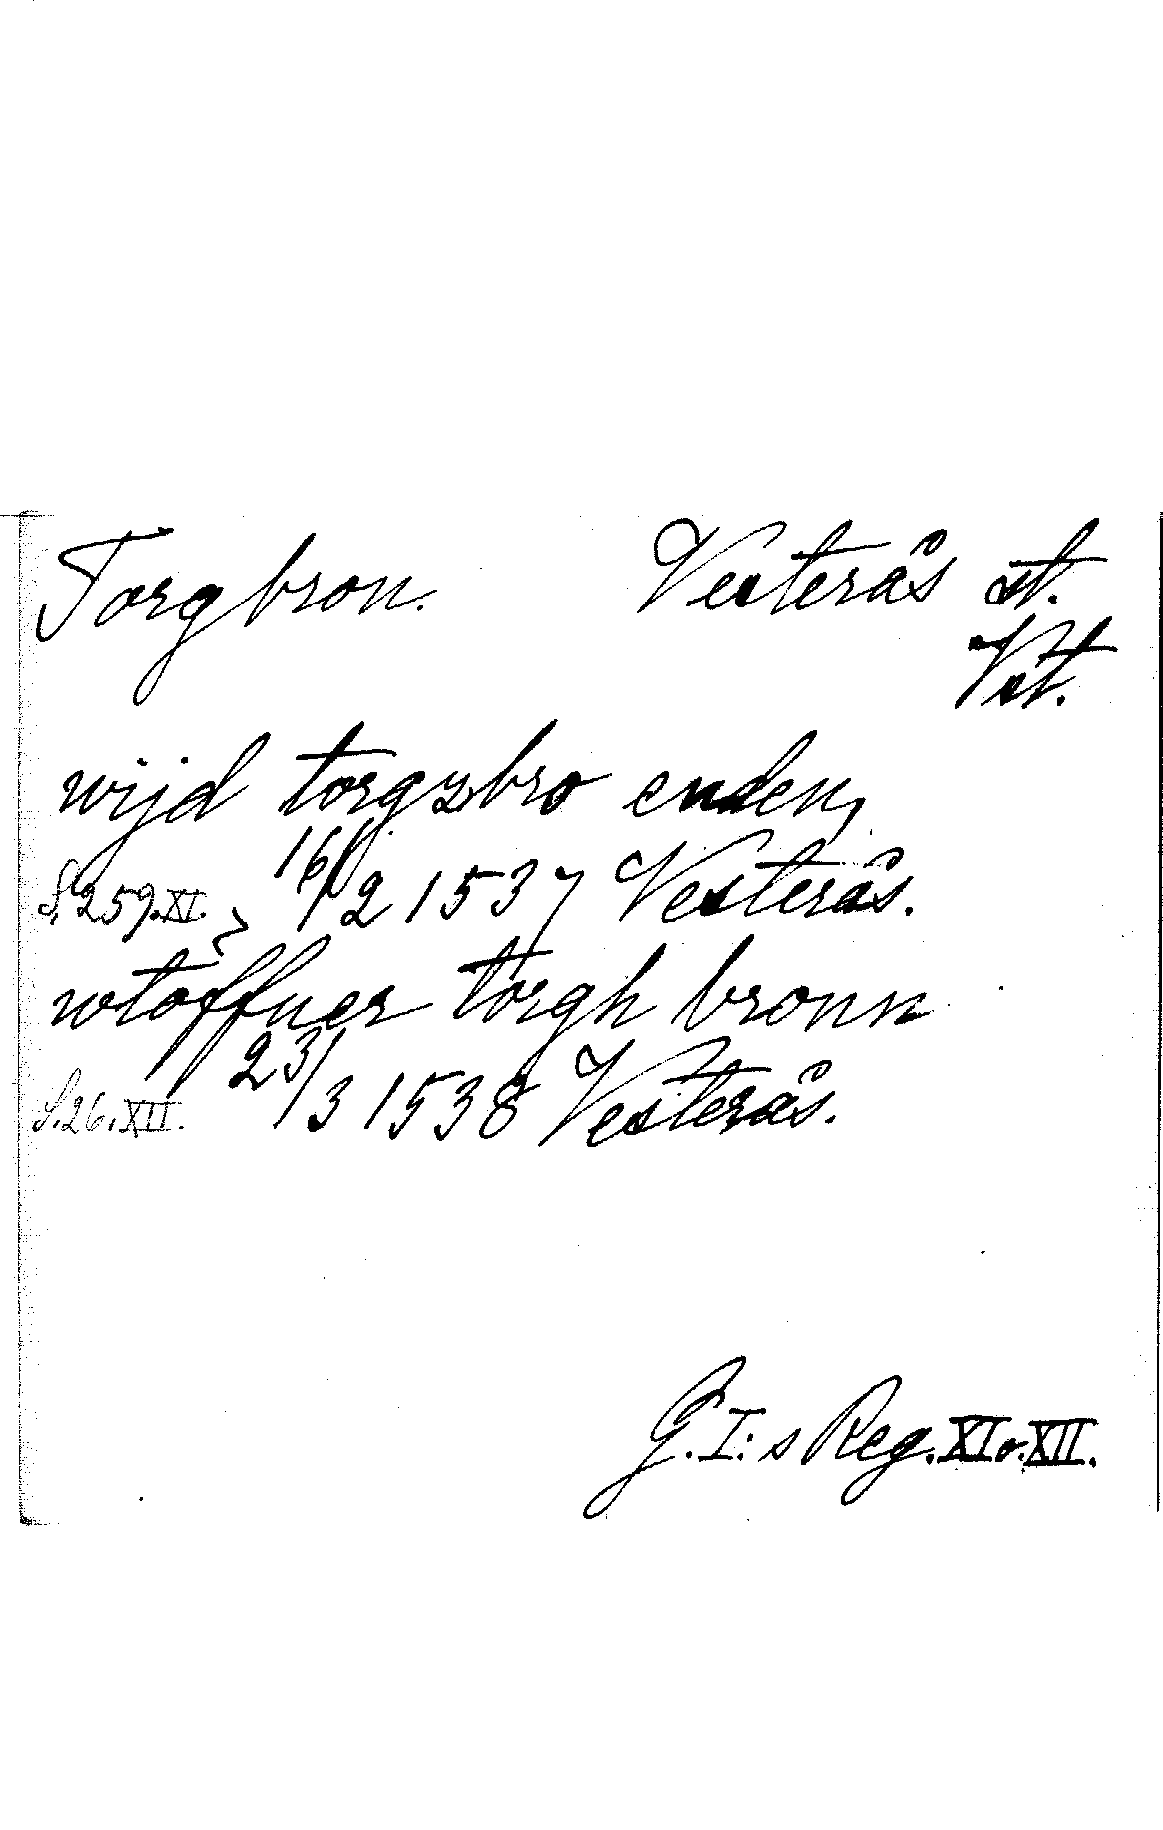 Torgbron. Vesterås st.
Vst.
wijd torgzbro enden,
S. 259. XI. 16/2 1537 Vesterås.
wtoffuer torgh bronn
S. 26. XII. 23/3 1538 Vesterås.
G. I:s Reg. XI o. XII.